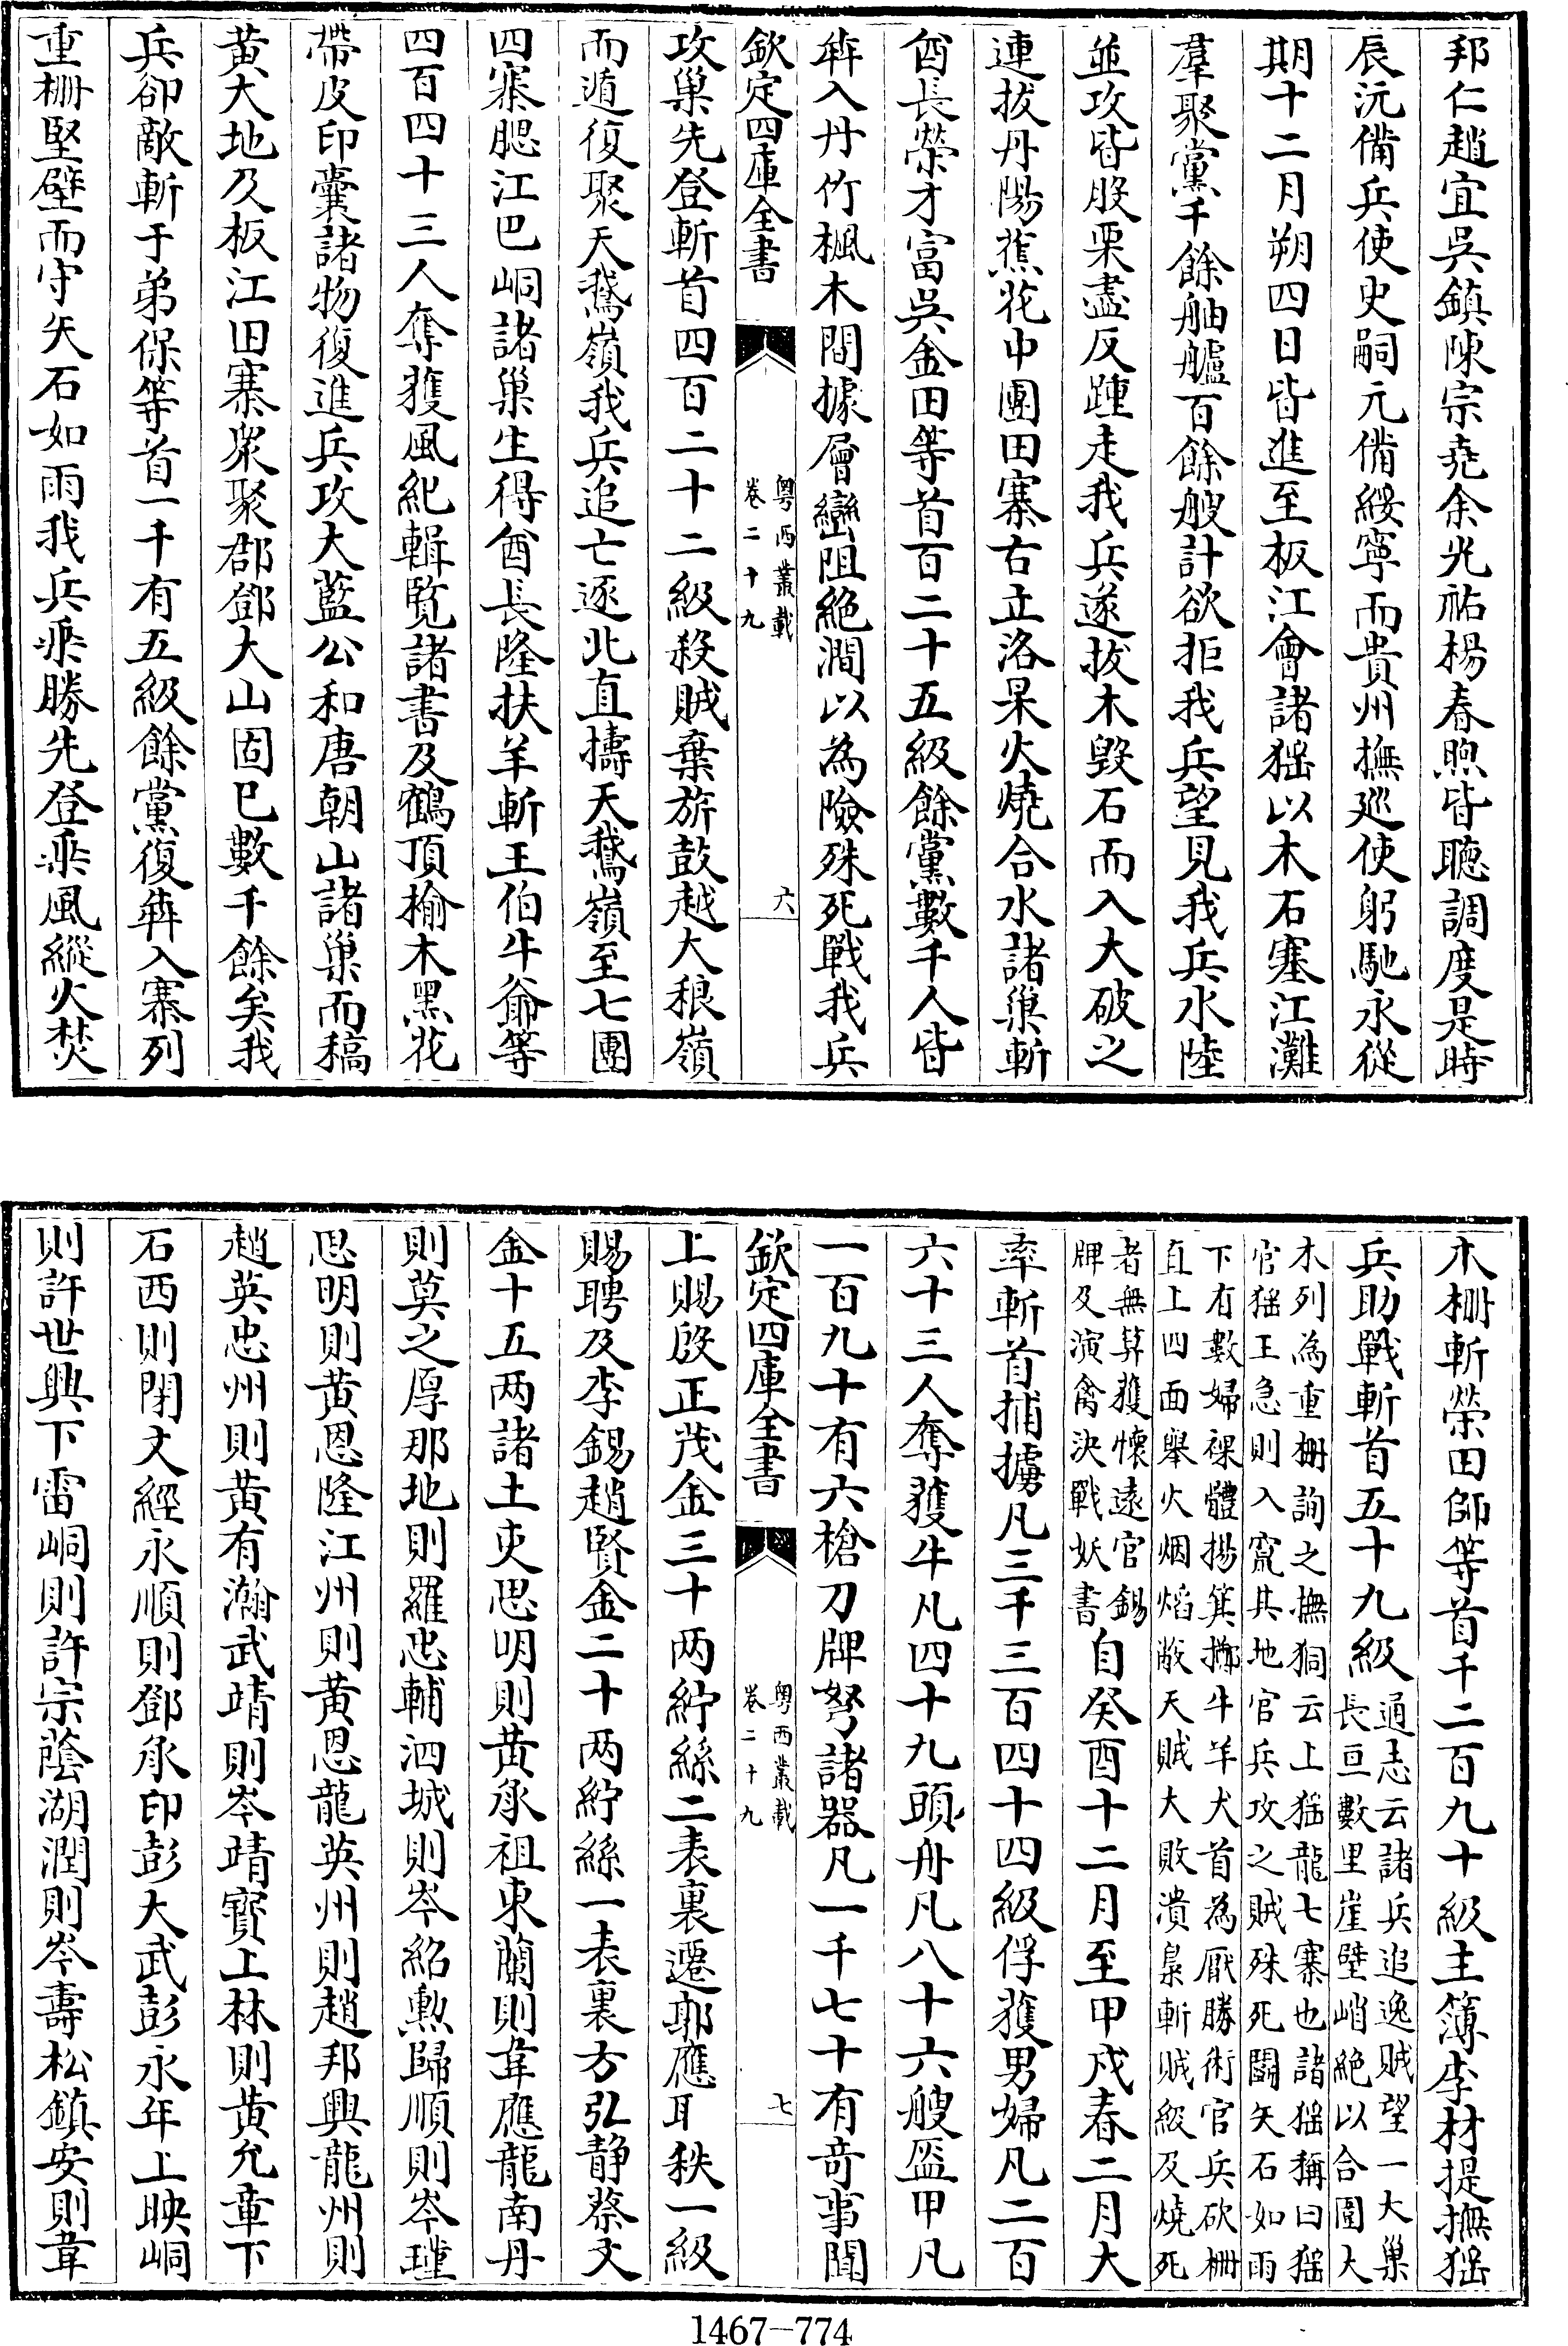 邦仁趙宜吳鎮陳宗堯余光祐楊春煦皆聽調度是時
辰沅備兵使史嗣元備綏寧而貴州撫廵使躬馳永從
期十二月朔四日皆進至板江㑹諸猺以木石塞江灘
羣聚黨千餘舳艫百餘艘計欲拒我兵望見我兵水陸
並攻皆股栗盡反踵走我兵遂拔木毁石而入大破之
連拔丹陽蕉花中團田寨右立洛杲火燒合水諸巢斬
酋長榮才富吳金田等首百二十五級餘黨數千人皆
犇入丹竹楓木間據層巒阻絶澗以為險殊死戰我兵
欽定四庫全書
粤西叢載
卷二十九
六
攻巢先登斬首四百二十二級殺賊棄旂鼓越大稂嶺
而遁復聚天鵞嶺我兵追亡逐北直擣天鵞嶺至七團
四寨腮江巴峒諸巢生得酋長隆扶羊斬王伯牛爺等
四百四十三人奪獲風紀輯覧諸書及鶴頂榆木黑花
帶皮印囊諸物復進兵攻大藍公和唐朝山諸巢而稿
黄大地及板江田寨衆聚郡鄧大山固巳數千餘矣我
兵卻敵斬于弟保等首一千有五級餘黨復犇入寨列
重柵堅壁而守矢石如雨我兵乘勝先登乘風縱火焚
木柵斬榮田師等首千二百九十級主簿李材提撫猺
兵助戰斬首五十九級
通志云諸兵追逸賊望一大巢
長亘數里崖壁峭絶以合圍大
木列為重柵詢之撫狪云上猺龍七寨也諸猺稱曰猺
官猺王急則入窺其地官兵攻之賊殊死鬬矢石如雨
下有數婦裸體揚箕擲牛羊犬首為厭勝術官兵砍柵
直上四面舉火烟焰敝天賊大敗潰梟斬賊級及燒死
者無算獲懐逺官錫
牌及演禽決戰妖書
自癸酉十二月至甲戌春二月大
率斬首捕擄凡三千三百四十四級俘獲男婦凡二百
六十三人奪獲牛凡四十九頭舟凡八十六艘盔甲凡
一百九十有六槍刀牌弩諸器凡一千七十有竒事聞
欽定四庫全書
粤西叢載
卷二十九
七
上賜殷正茂金三十两紵絲二表裏遷郭應耳秩一級
賜聘及李錫趙賢金二十两紵絲一表裏方弘静蔡文
金十五两諸土吏思明則黄承祖東蘭則韋應龍南丹
則莫之厚那地則羅忠輔泗城則岑紹勲歸順則岑瑾
思明則黄恩隆江州則黄恩龍英州則趙邦興龍州則
趙英忠州則黄有瀚武靖則岑靖寳上林則黄允章下
石西則閉文經永順則鄧承印彭大武彭永年上映峒
則許世興下雷峒則許宗蔭湖潤則岑壽松鎮安則韋
1467-774